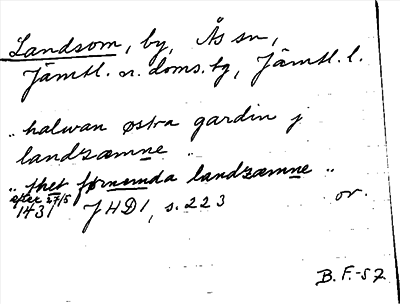 Landsom, by, Ås sn,
Jämtl. n. doms. tg, Jämtl. l.
"halwan østra gardin j
landzæmne"
"thet førnemda landzæmne"
efter 27/5
1431 JHD1, s. 223 or.
B. F.-57